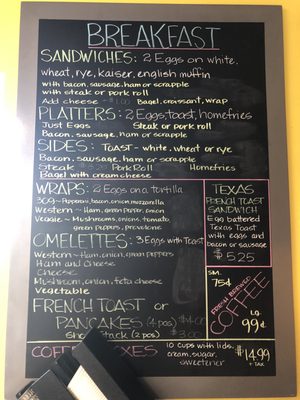 BREAKFAST
SANDWICHES: 2 Eggs on white,
wheat, rye, kaiser, english muffin
with bacon, sausage, ham or scrapple
with steak or pork roll
Add cheese Bagel, croissant, wrap
PLATTERS: 2 Eggs, toast, homefries
Just Eggs Steak or pork roll
Bacon, sausage, ham or scrapple
SIDES: Toast - white, wheat or rye
Bacon, sausage, ham or scrapple
Steak Pork Roll Homefries
Bagel with cream cheese
WRAPS: 2 Eggs on a tortilla
309 - Pepperoni, bacon, onion, mozzarella
Western - Ham, green pepper, onion
Veggie - Mushrooms, onions, tomato,
green peppers, provolone
OMELETTES: 3 Eggs with Toast
Western - Ham, onion, green peppers
Ham and Cheese
Cheese
Mushroom, onion, feta cheese
Vegetable
FRENCH TOAST or
PANCAKES (4 pcs) $4.00
Short Stack (2 pcs) $3.00
TEXAS
FRENCH TOAST
SANDWICH
Egg battered
Texas Toast
with eggs and
bacon or sausage
$5.25
SM.
75¢
COFFEE
LG.
99¢
COFFEE BOXES
10 cups with lids,
cream, sugar,
sweetener
$14.99
+ TAX